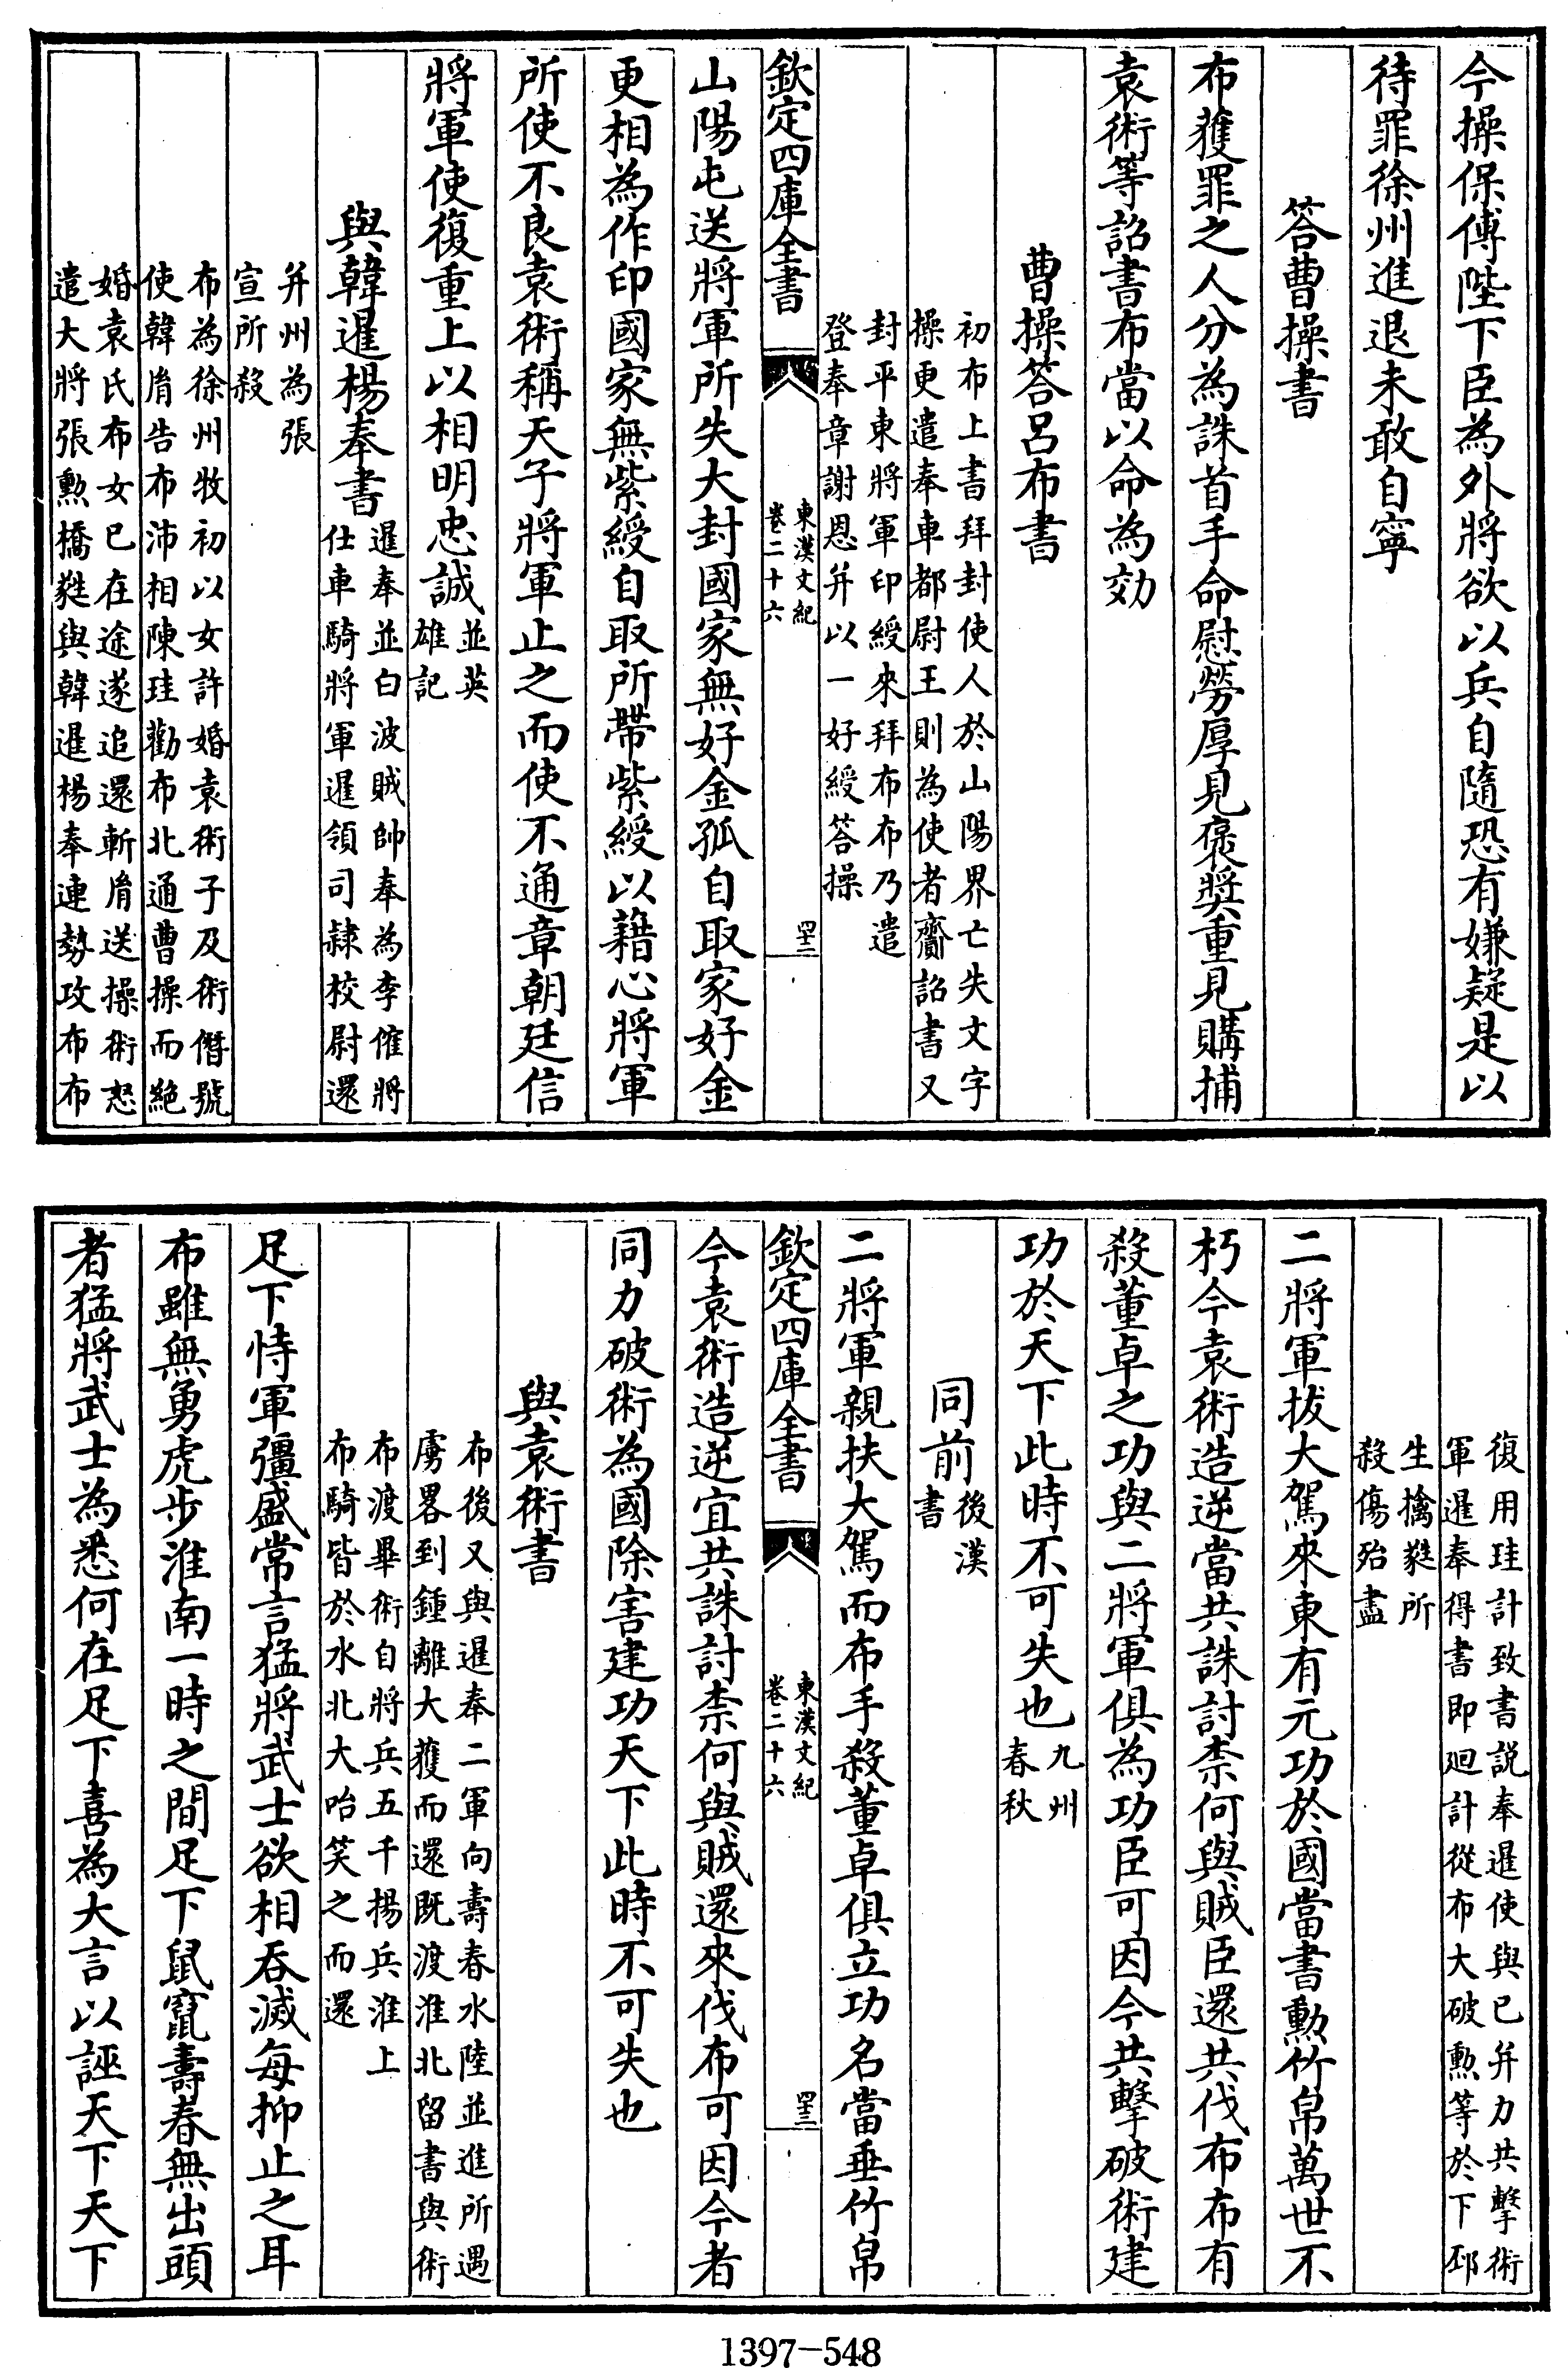 今操保傅陛下臣為外將欲以兵自隨恐有嫌疑是以
待罪徐州進退未敢自寧
答曹操書
布獲罪之人分為誅首手命慰勞厚見褒奬重見購捕
袁術等詔書布當以命為効
曹操答呂布書
初布上書拜封使人於山陽界亡失文字
操更遣奉車都尉王則為使者齎詔書又
封平東將軍印綬來拜布布乃遣
登奉章謝恩并以一好綬答操
欽定四庫全書
東漢文紀
卷二十六
四十二
山陽屯送將軍所失大封國家無好金孤自取家好金
更相為作印國家無紫綬自取所帶紫綬以藉心將軍
所使不良袁術稱天子將軍止之而使不通章朝廷信
將軍使復重上以相明忠誠並英
雄記
與韓暹楊奉書暹奉並白波賊帥奉為李傕將
仕車騎將軍暹領司隷校尉還
并州為張
宣所殺
布為徐州牧初以女許婚袁術子及術僭號
使韓胤告布沛相陳珪勸布北通曹操而絶
婚袁氏布女已在途遂追還斬胤送操術怒
遣大將張勲橋蕤與韓暹楊奉連勢攻布布
復用珪計致書説奉暹使與已并力共擊術
軍暹奉得書即廻計從布大破勲等於下邳
生擒蕤所
殺傷殆盡
二將軍拔大駕來東有元功於國當書勲竹帛萬世不
朽今袁術造逆當共誅討柰何與賊臣還共伐布布有
殺董卓之功與二將軍俱為功臣可因今共擊破術建
功於天下此時不可失也九州
春秋
同前後漢
書
二將軍親扶大駕而布手殺董卓俱立功名當垂竹帛
欽定四庫全書
東漢文紀
卷二十六
四十三
今袁術造逆宜共誅討柰何與賊還來伐布可因今者
同力破術為國除害建功天下此時不可失也
與袁術書
布後又與暹奉二軍向壽春水陸並進所遇
虜畧到鍾離大獲而還既渡淮北留書與術
布渡畢術自將兵五千揚兵淮上
布騎皆於水北大咍笑之而還
足下恃軍彊盛常言猛將武士欲相吞滅每抑止之耳
布雖無勇虎步淮南一時之間足下鼠竄壽春無出頭
者猛將武士為悉何在足下喜為大言以誣天下天下
1397-548